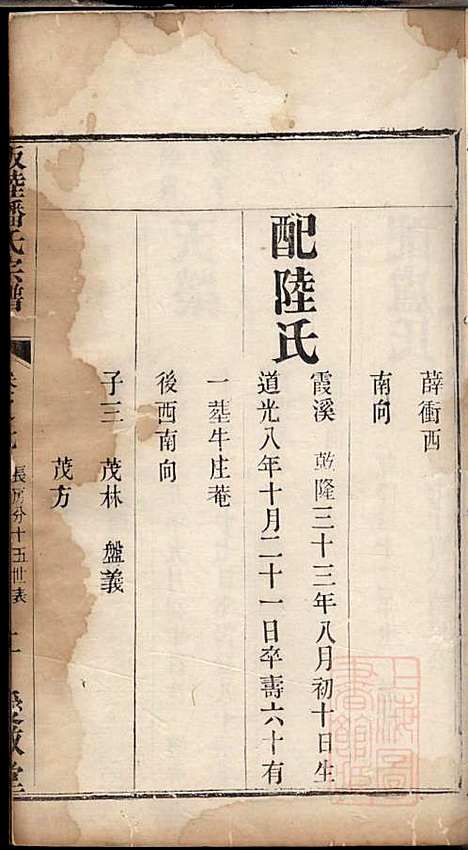 薛衝西
南向
配陸氏
霞溪 乾隆三十三年八月初十日生
道光八年十月二十一日卒壽六十有
一塟牛庄菴
後西南向
子三 茂林 盤義
茂方
陸潘氏宗譜
長房分十五世表
上海圖書館藏